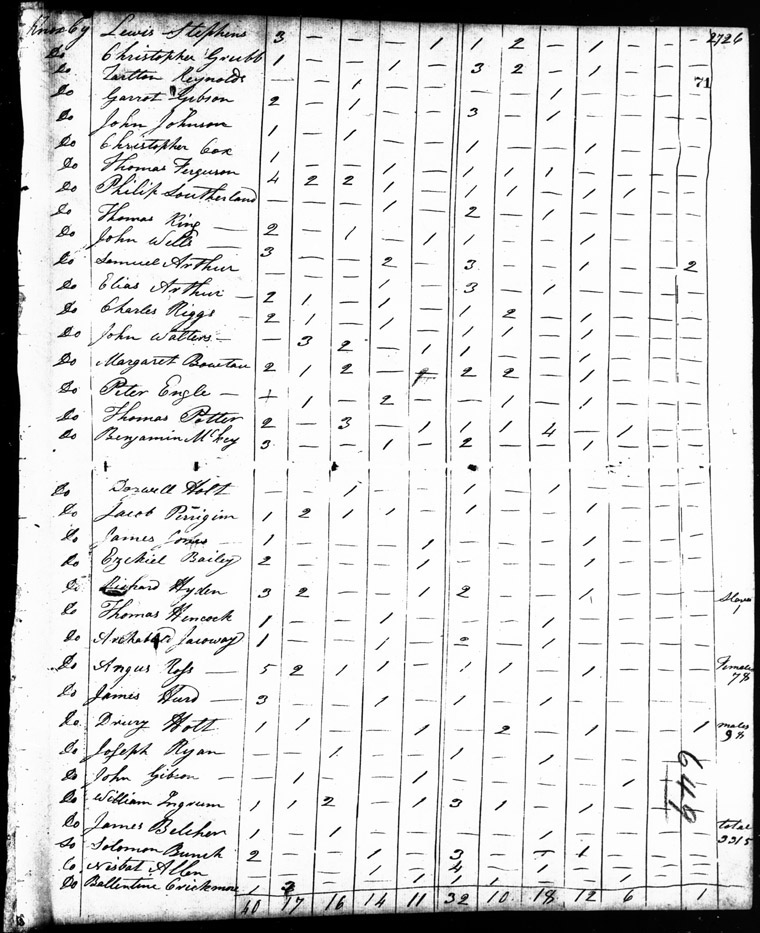 Knox Cy Lewis Stephens 3 — — — 1 1 2 — 1 — — — 2726
Do Christopher Grubb 1 — — 1 — 3 2 — 1 — — —
Do Tarlton Reynolds — — 1 — — — — — — — — 71
Do Garrot Gibson 2 — 1 — — 3 — 1 — — —
Do John Johnson
Do Christopher Cox 1 — 1 — — 1 — — 1 — — —
Do Thomas Ferguson 1 — — 1 — 1 1 1 — — —
Do Philip Southerland 4 2 2 1 — 1 1 — 1 1 — —
Do Thomas King — — — — 1 — 2 — 1 — — — —
Do John Wells — 2 — 1 — 1 1 — — 1 — — —
Do Samuel Arthur 3 — — 2 — 3 — — 1 — — 2
Do Elias Arthur — — — — 1 — 3 — 1 — — —
Do Charles Riggs — 2 1 — 1 — 1 2 — 1 — — —
Do John Watters — 2 1 — 1 — 1 1 — 1 — — —
Do Margaret — 3 2 — 1 1 — — 1 — — —
Do Peter Engle — 2 1 2 — 2 2 — 1 — — —
Do Thomas Potter + 1 — 2 — — 1 — 1 — — —
Do Benjamin McKey 2 — 3 — 1 1 1 4 — 1 — —
3 — — 1 — 2 — — 1 — — —
Do Holt — — 1 — — 1 — 1 — — — —
Do Jacob Perrigin 1 2 1 1 — 1 — — 1 — — —
Do James Jones — 1 — — — 1 — — — 1 — — —
Do Ezekiel Bailey 2 — — — 1 — — — 1 — — —
Do Hyden 3 2 — — 1 2 — — 1 — — — Slaves
1
Do Thomas Hencock 1 — — 1 — — — 1 — — — —
Do Jacoway 1 — — 1 — 2 — 1 — — — —
Do Angus Ross — 5 2 1 1 — 1 1 — 1 — — — Females
78
Do James Hurd — 3 — — 1 — 1 — 1 — — — —
Do Drury Holt 1 1 — — 1 — 2 — 1 — — 1 males
98
Do Joseph Ryan — — 1 — — 1 — 1 — — — —
Do John Gibson — — 1 — — 1 — — — — 1 — —
649
Do William Ingrum 1 1 2 — 1 3 1 — 1 — — —
Do James Belcher 1 — 1 — — — — 1 — — — — total
3315
Do Solomon Bunch 2 — — 1 — 3 — 1 1 — — —
Co Nisbat Allen — — — 1 1 4 — 1 — — — —
Do Ballentine Crickmore 1 3 — — 1 1 1 — — 1 — —
40 17 16 14 11 32 10 18 12 6 1